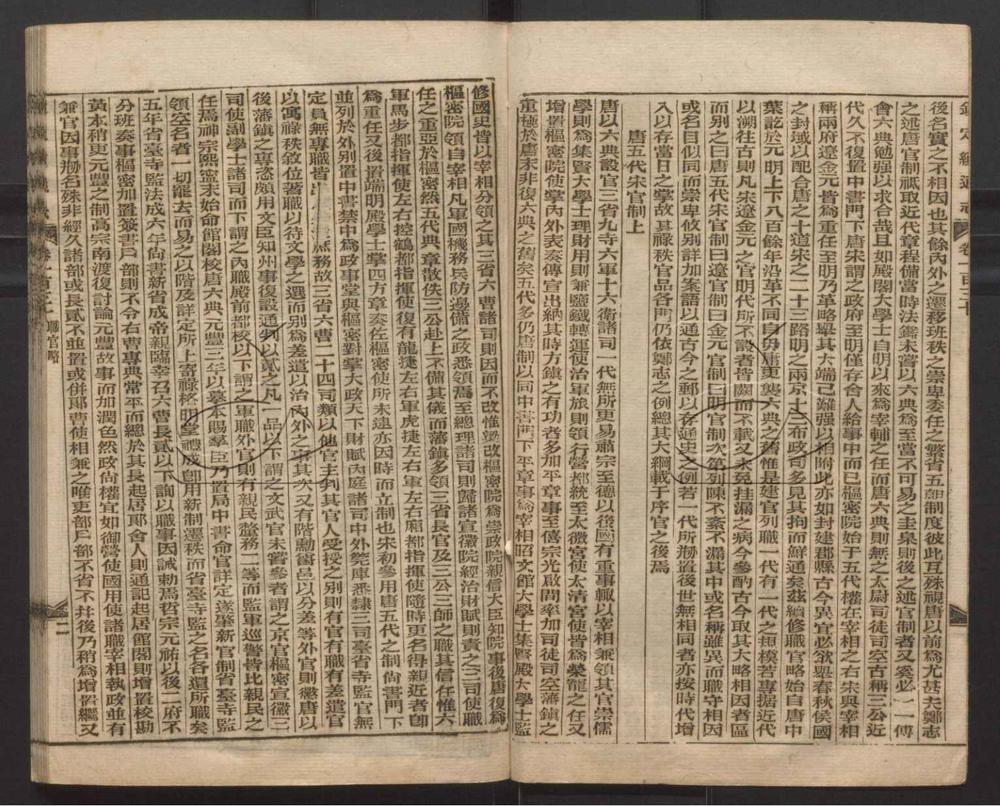 欽定續通志 卷一百三十
後名實之不相因也其餘內外之遷移班秩之崇卑委任之繁省五部制度彼此互殊視唐以前為尤甚夫鄭志
之述唐官制祗取近代章程備當時法鑒未嘗以六典為至當不可易之圭臬則後之述官制者又奚必一一傅
會六典勉强以求合哉且如殿閣大學士自明以來為宰輔之任而唐六典則無之太尉司徒司空古稱三公近
代久不復置中書門下唐宋謂之政府至明僅存舍人給事中而已樞密院始于五代權在宰相之右宋與宰相
稱兩府遼金元皆為重任至明乃革略舉其大端已難强以相附此亦如封建郡縣古今異宜必欲舉春秋侯國
之封域以配合唐之十道宋之二十三路明之兩京十三布政司多見其拘而鮮通矣茲續修職官略始自唐中
葉訖於元明上下八百餘年沿革不同自毋庸更襲六典之舊惟是建官列職一代有一代之規模若專據近代
以溯往古則凡宋遼金元之官明代所不設者皆闕而不載又未免挂漏之病今參酌古今取其大略相因者區
而別之曰唐五代宋官制曰遼官制曰金元官制曰明官制次第列陳不紊不漏其中或名稱雖異而職守相因
或名目似同而崇卑攸别詳加案語以通古今之郵以存通史之例若一代所剏置後世無相同者亦按時代增
入以存當日之掌故其祿秩官品各門仍依鄭志之例總其大綱載于序官之後焉
唐五代宋官制上
唐以六典設官三省九寺六軍十六衛諸司一代無所更易肅宗至德以後國有重事輒以宰相兼領其官崇儒
學則為集賢大學士理財用則兼鹽鐵轉運使治軍旅則領行營都統至太微宮使太清宮使皆為榮寵之任又
增置樞密院使掌內外表奏傳宣出納其時方鎮之有功者多加平章事至僖宗光啟間率加司徒司空藩鎮之
重極於唐末非復六典之舊矣五代多仍唐制以同中書門下平章事為宰相昭文館大學士集賢殿大學士監
修國史皆以宰相分領之其三省六曹諸司則因而不改惟梁改樞密院為崇政院親信大臣知院事後唐復為
樞密院領自宰相凡軍國機務兵防邊備之政悉領焉至總理諸司則歸諸宣徽院經治財賦則責之三司使職
任之重亞於樞密然五代典章散佚三公赴上不備其儀而藩鎮多領三省長官及三公三師之職其信任惟六
軍馬步都指揮使左右控鶴都指揮使復有龍捷左右軍虎捷左右軍左右廂都指揮使隨時更名得親近者即
為重任又後置端明殿學士掌四方章奏佐樞密使所未逮亦因時而立制也宋初參用唐五代之制尚書門下
並列於外別置中書禁中為政事堂與樞密對掌大政天下財賦內庭諸司中外筦庫悉隸三司臺省寺監官無
定員無專職皆出 庶務故三省六曹二十四司類以他官主判其官人受授之別則有官有職有差遣官
以寓祿秩敘位著職以待文學之選而别為差遣以治內外之事其次又有階勳爵邑以分差等外官則懲唐以
後藩鎮之專恣頗用文臣知州事復設通判以貳之凡一品以下謂之文武官未嘗參者謂之京官樞密宣徽三
司使副學士諸司而下謂之內職殿前都校以下謂之軍職外官則有親民釐務二等而監軍巡警皆比親民之
任焉神宗熙寧末始命館閣校唐六典元豐三年以摹本賜羣臣乃置局中書命官詳定遂肇新官制省臺寺監
領空名者一切罷去而易之以階及詳定所上寄祿格明堂禮成即用新制遷秩而省臺寺監之名各還所職矣
五年省臺寺監法成六年尚書新省成帝親臨幸召六曹長貳以下詢以職事因誡勅焉哲宗元祐以後二府不
分班奏事樞密加置簽書戶部則不令右曹專典常平而總於其長起居郎舍人則通記起居館閣則增置校勘
黄本稍更元豐之制高宗南渡復討論元豐故事而加潤色然政尚權宜如御營使國用使諸職宰相執政並有
兼官因事剏名殊非經久諸部或長貳不並置或併郎曹使相兼之唯吏部戶部不省不并後乃稍為增置繼又
職官略
二